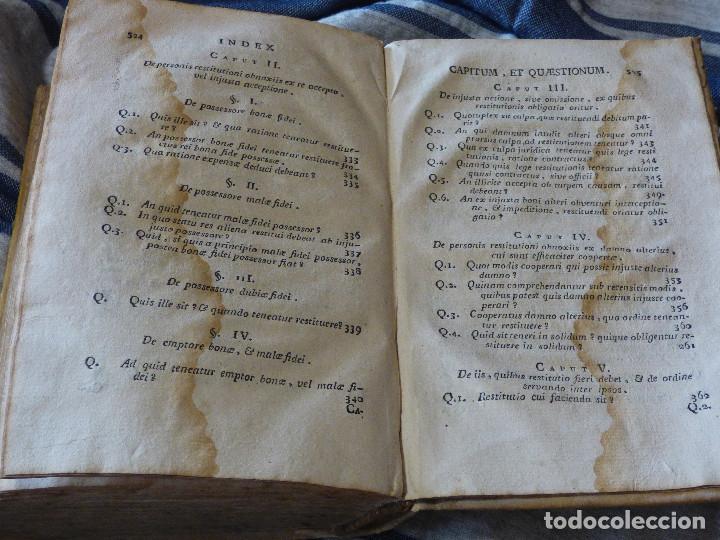 524
INDEX
CAPUT II.
De personis restitutioni obnoxiis ex re accepta,
vel injusta acceptione.
§. I.
De possessore bonæ fidei.
Q.1. Quis ille sit? & qua ratione teneatur restitue-
re? 333
Q.2. An possessor bonæ fidei teneatur restituere fru-
ctus rei bonæ fide possessæ. 334
Q.3. Qua ratione expensæ deduci debeant? 335
§. II.
De possessore malæ fidei.
Q.1. An quid teneatur malæ fidei possessor? 336
Q.2. In quo statu res aliena restitui debeat ab inju-
justo possessore? 337
Q.3. Quid, si quis a principio malæ fidei possessor,
postea bonæ fidei possessor fiat? 338
§. III.
De possessore dubiæ fidei.
Q. Quis ille sit? & quando teneatur restituere? 339
§. IV.
De emptore bonæ, & malæ fidei.
Q. Ad quid teneatur emptor bonæ, vel malæ fi-
dei? 340
CA-
CAPITUM, ET QUÆSTIONUM. 525
CAPUT III.
De injusta actione, sive omissione, ex quibus
restitutionis obligatio oritur.
Q.1. Quotuplex sit culpa, quæ restituendi debitum pa-
rit? 341
Q.2. An qui damnum intulit alteri absque omni
prorsus culpa, ad restitutionem teneatur? 343
Q.3. Qua ex culpa juridica teneatur quis lege resti-
tutionis, ratione contractus? 343
Q.4. Quando quis lege restitutionis teneatur ratione
quansi contractus, sive officii? 345
Q.5. An illicite accepta ob turpem causam, restitui
debeant? 349
Q.6. An ex injusta boni alteri obventuri interceptio-
ne, & impeditione, restituendi oriatur obli-
gatio? 351
CAPUT IV.
De personis restitutioni obnoxiis ex damno alterius,
cui sunt efficaciter cooperatæ.
Q.1. Quot modis cooperari qui possit injuste alterius
damno? 353
Q.2. Quinam comprehendantur sub recensitis modis,
quibus potest quis damno alterius injuste coo-
perari? 356
Q.3. Cooperatus damno alterius, quo ordine tenea-
tur restituere? 360
Q.4. Quid sit teneri in solidum? quique obligentur re-
stituere in solidum? 261
CAPUT V.
De iis, quibus restitutio fieri debet, & de ordine
servando inter ipsos.
Q.1. Restitutio cui facienda sit? 362
Q.2.
todocoleccion.net